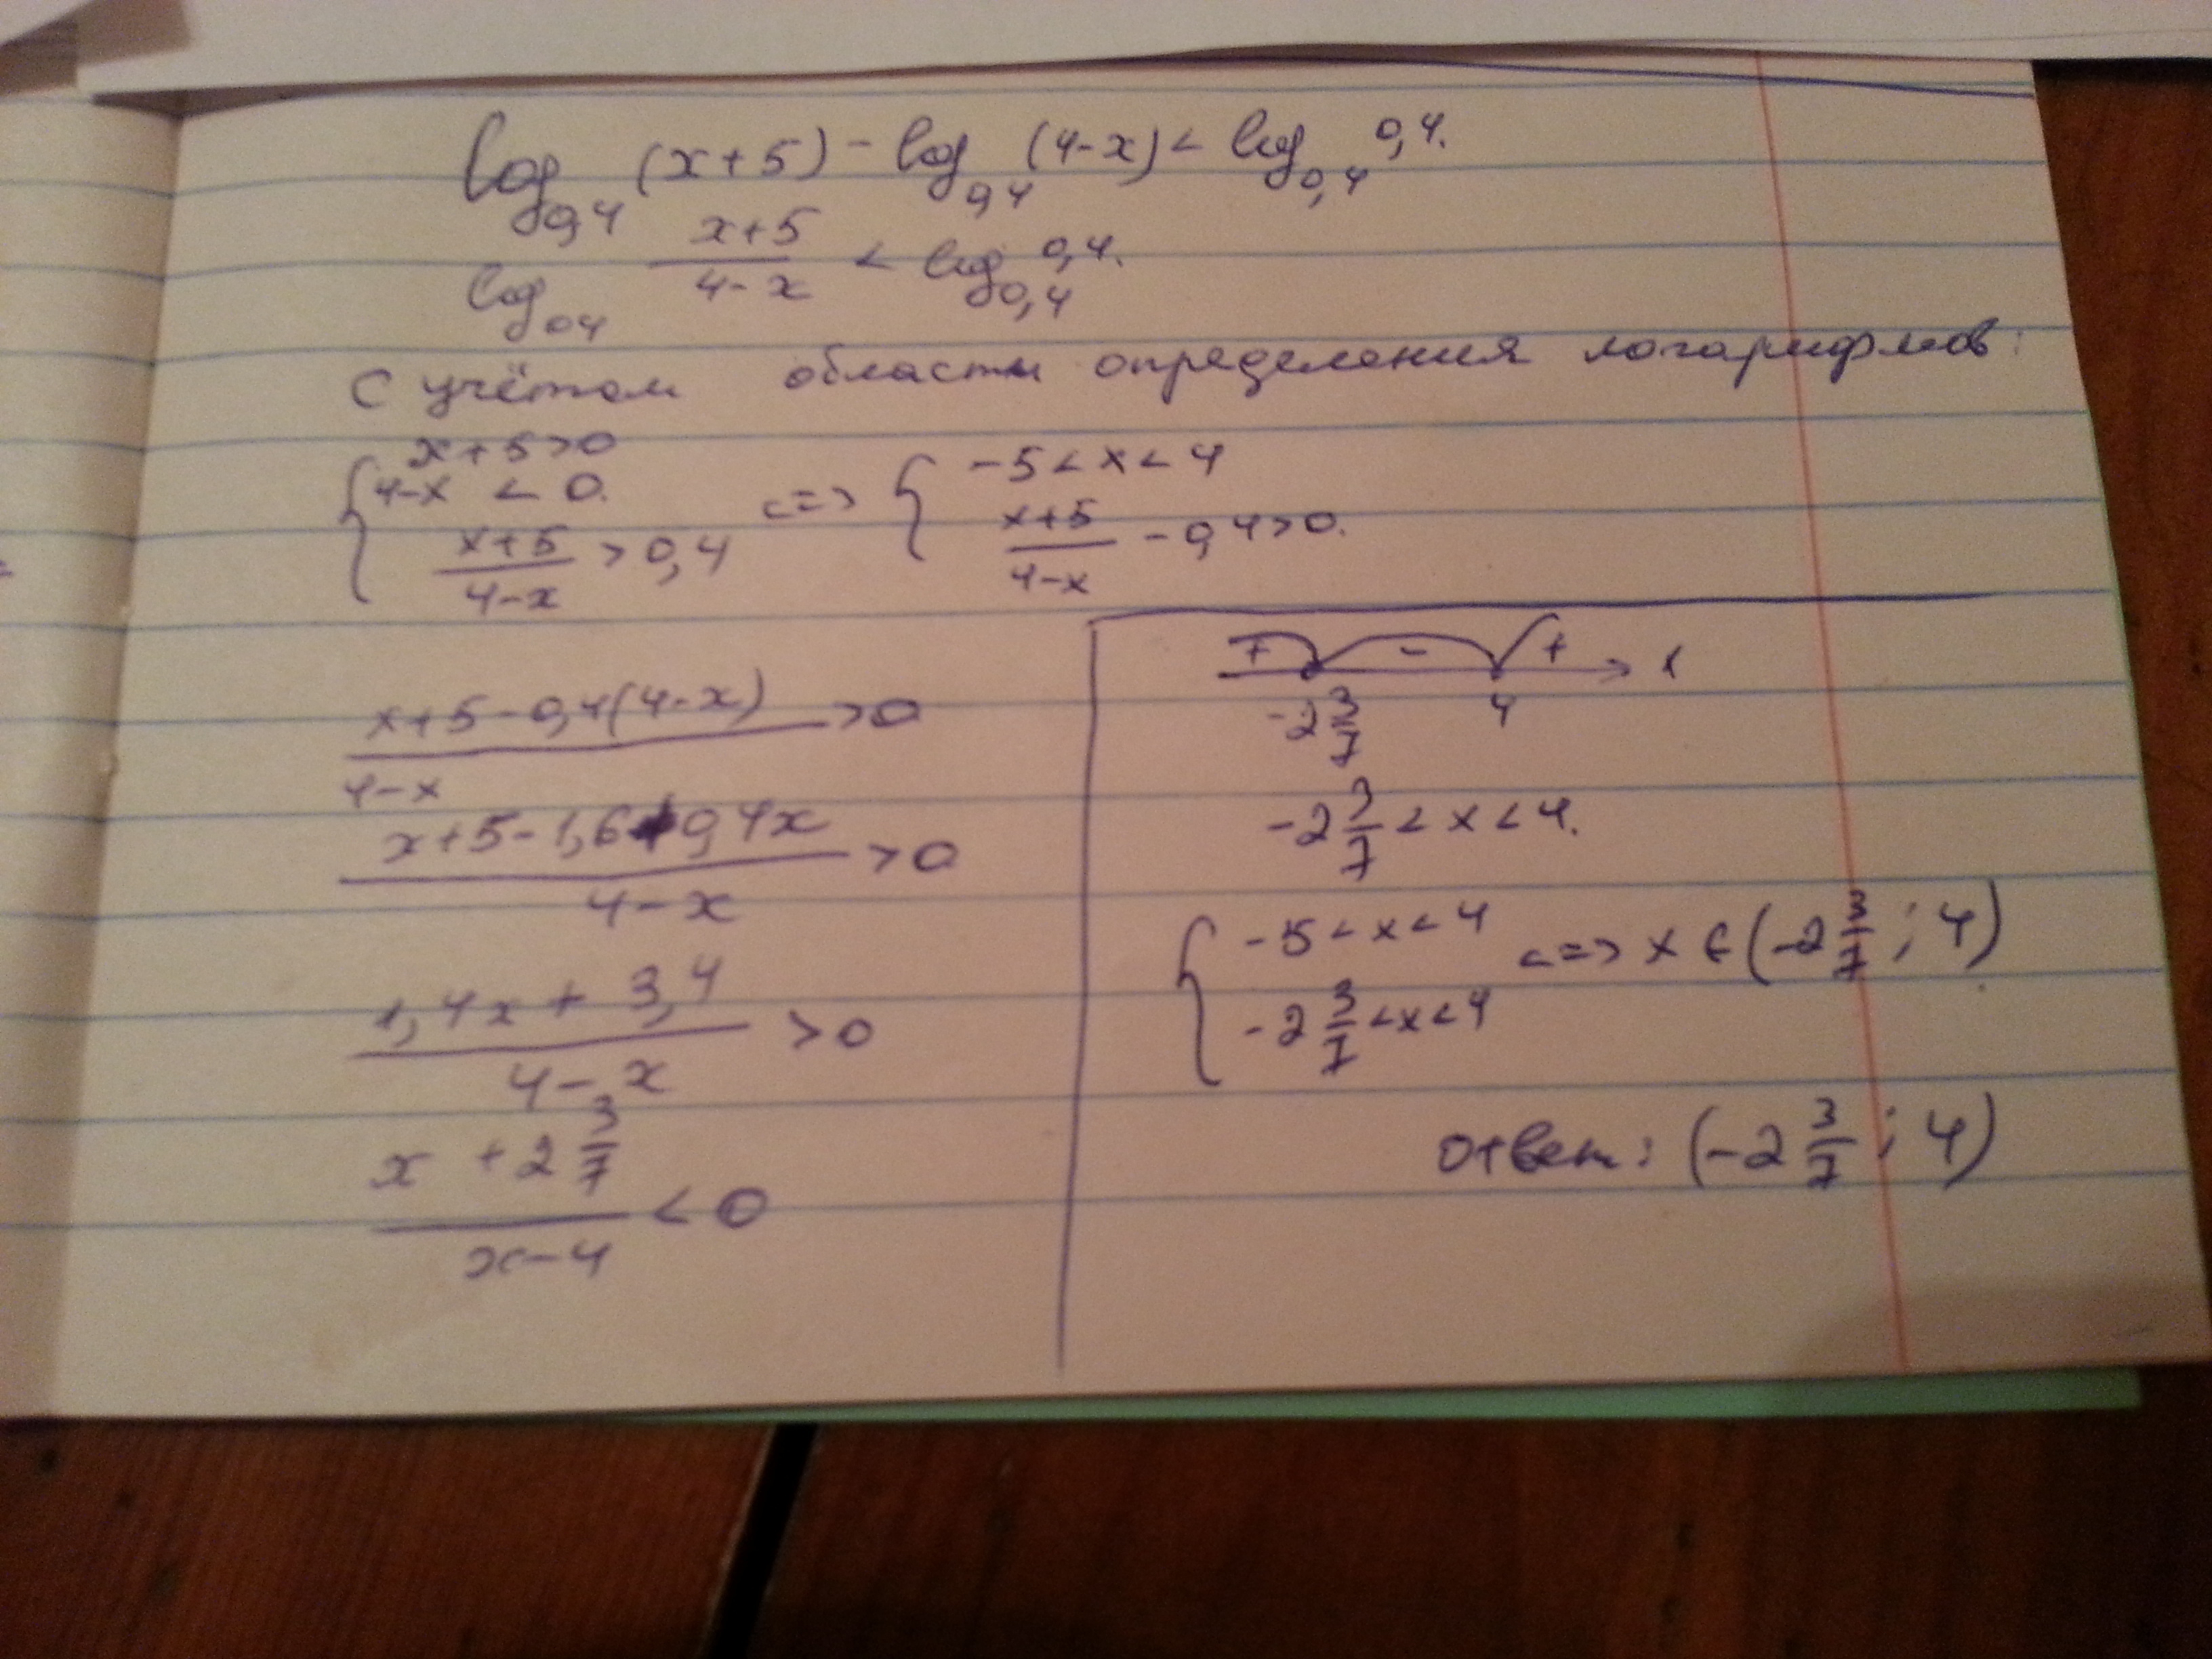 log₀,₄ (x+5) - log₀,₄ (4-x) < log₀,₄ 0,4.
log₀₄ (x+5)/(4-x) < log₀,₄ 0,4.
С учётом области определения логарифмов:
{ x+5>0
4-x < 0.
(x+5)/(4-x) > 0,4 <=> { -5 < x < 4
(x+5)/(4-x) - 0,4 > 0.
(x+5-0,4(4-x))/(4-x) > 0
(x+5-1,6+0,4x)/(4-x) > 0
(1,4x + 3,4)/(4-x) > 0
(x + 2 3/7)/(x-4) < 0
+ - + x
-2 3/7 4
-2 3/7 < x < 4.
{ -5 < x < 4
-2 3/7 < x < 4 <=> x ∈ (-2 3/7 ; 4)
Ответ: (-2 3/7 ; 4)